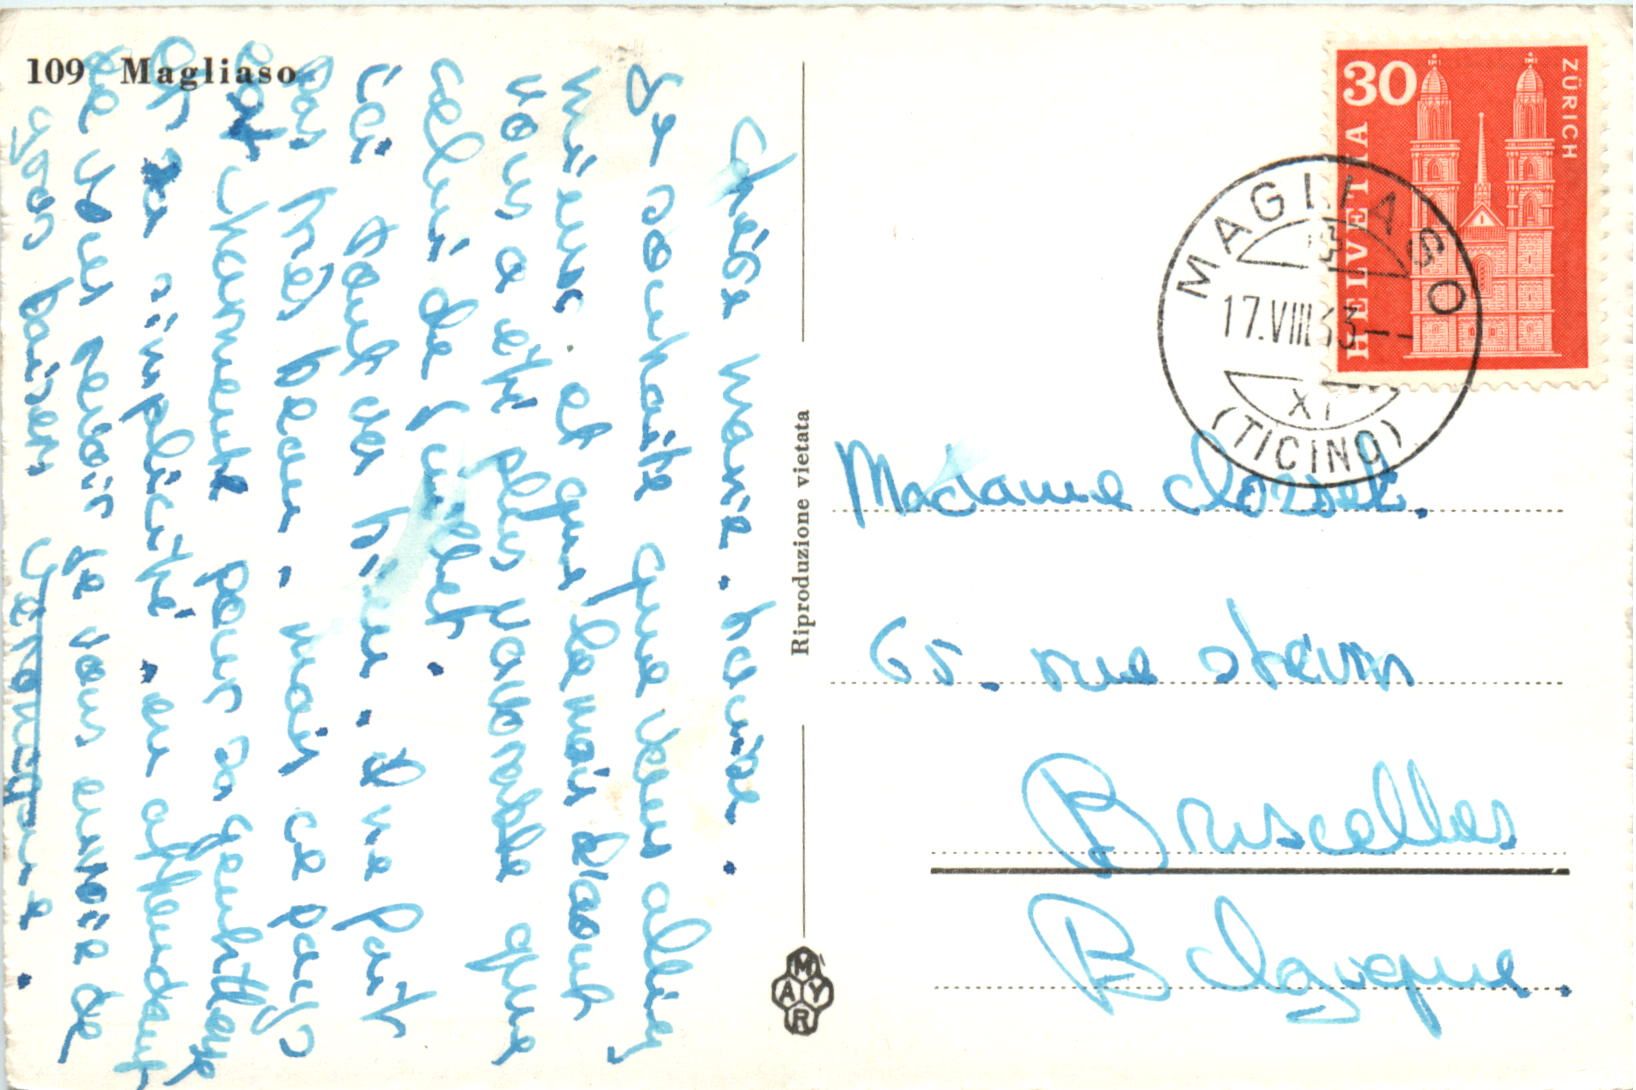 109 Magliaso
Chère marie. Louise.
Je souhaite que vous alliez
mieux. et que le mois d'aout
vous a été plus favorable que
celui de Juillet.
ici tout va bien. il ne fait
pas très beau. mais ce pays
est charmante pour sa gentillesse
et sa simplicité. en attendant
de vous revoir je vous envoie de
gros baisers Veronique.
Riproduzione vietata
MAYR
HELVETIA
30
ZÜRICH
MAGLIASO
17.VIII.63--
XI
(TICINO)
Madame Closset.
65. rue stévin
Bruscelles
Belgique.